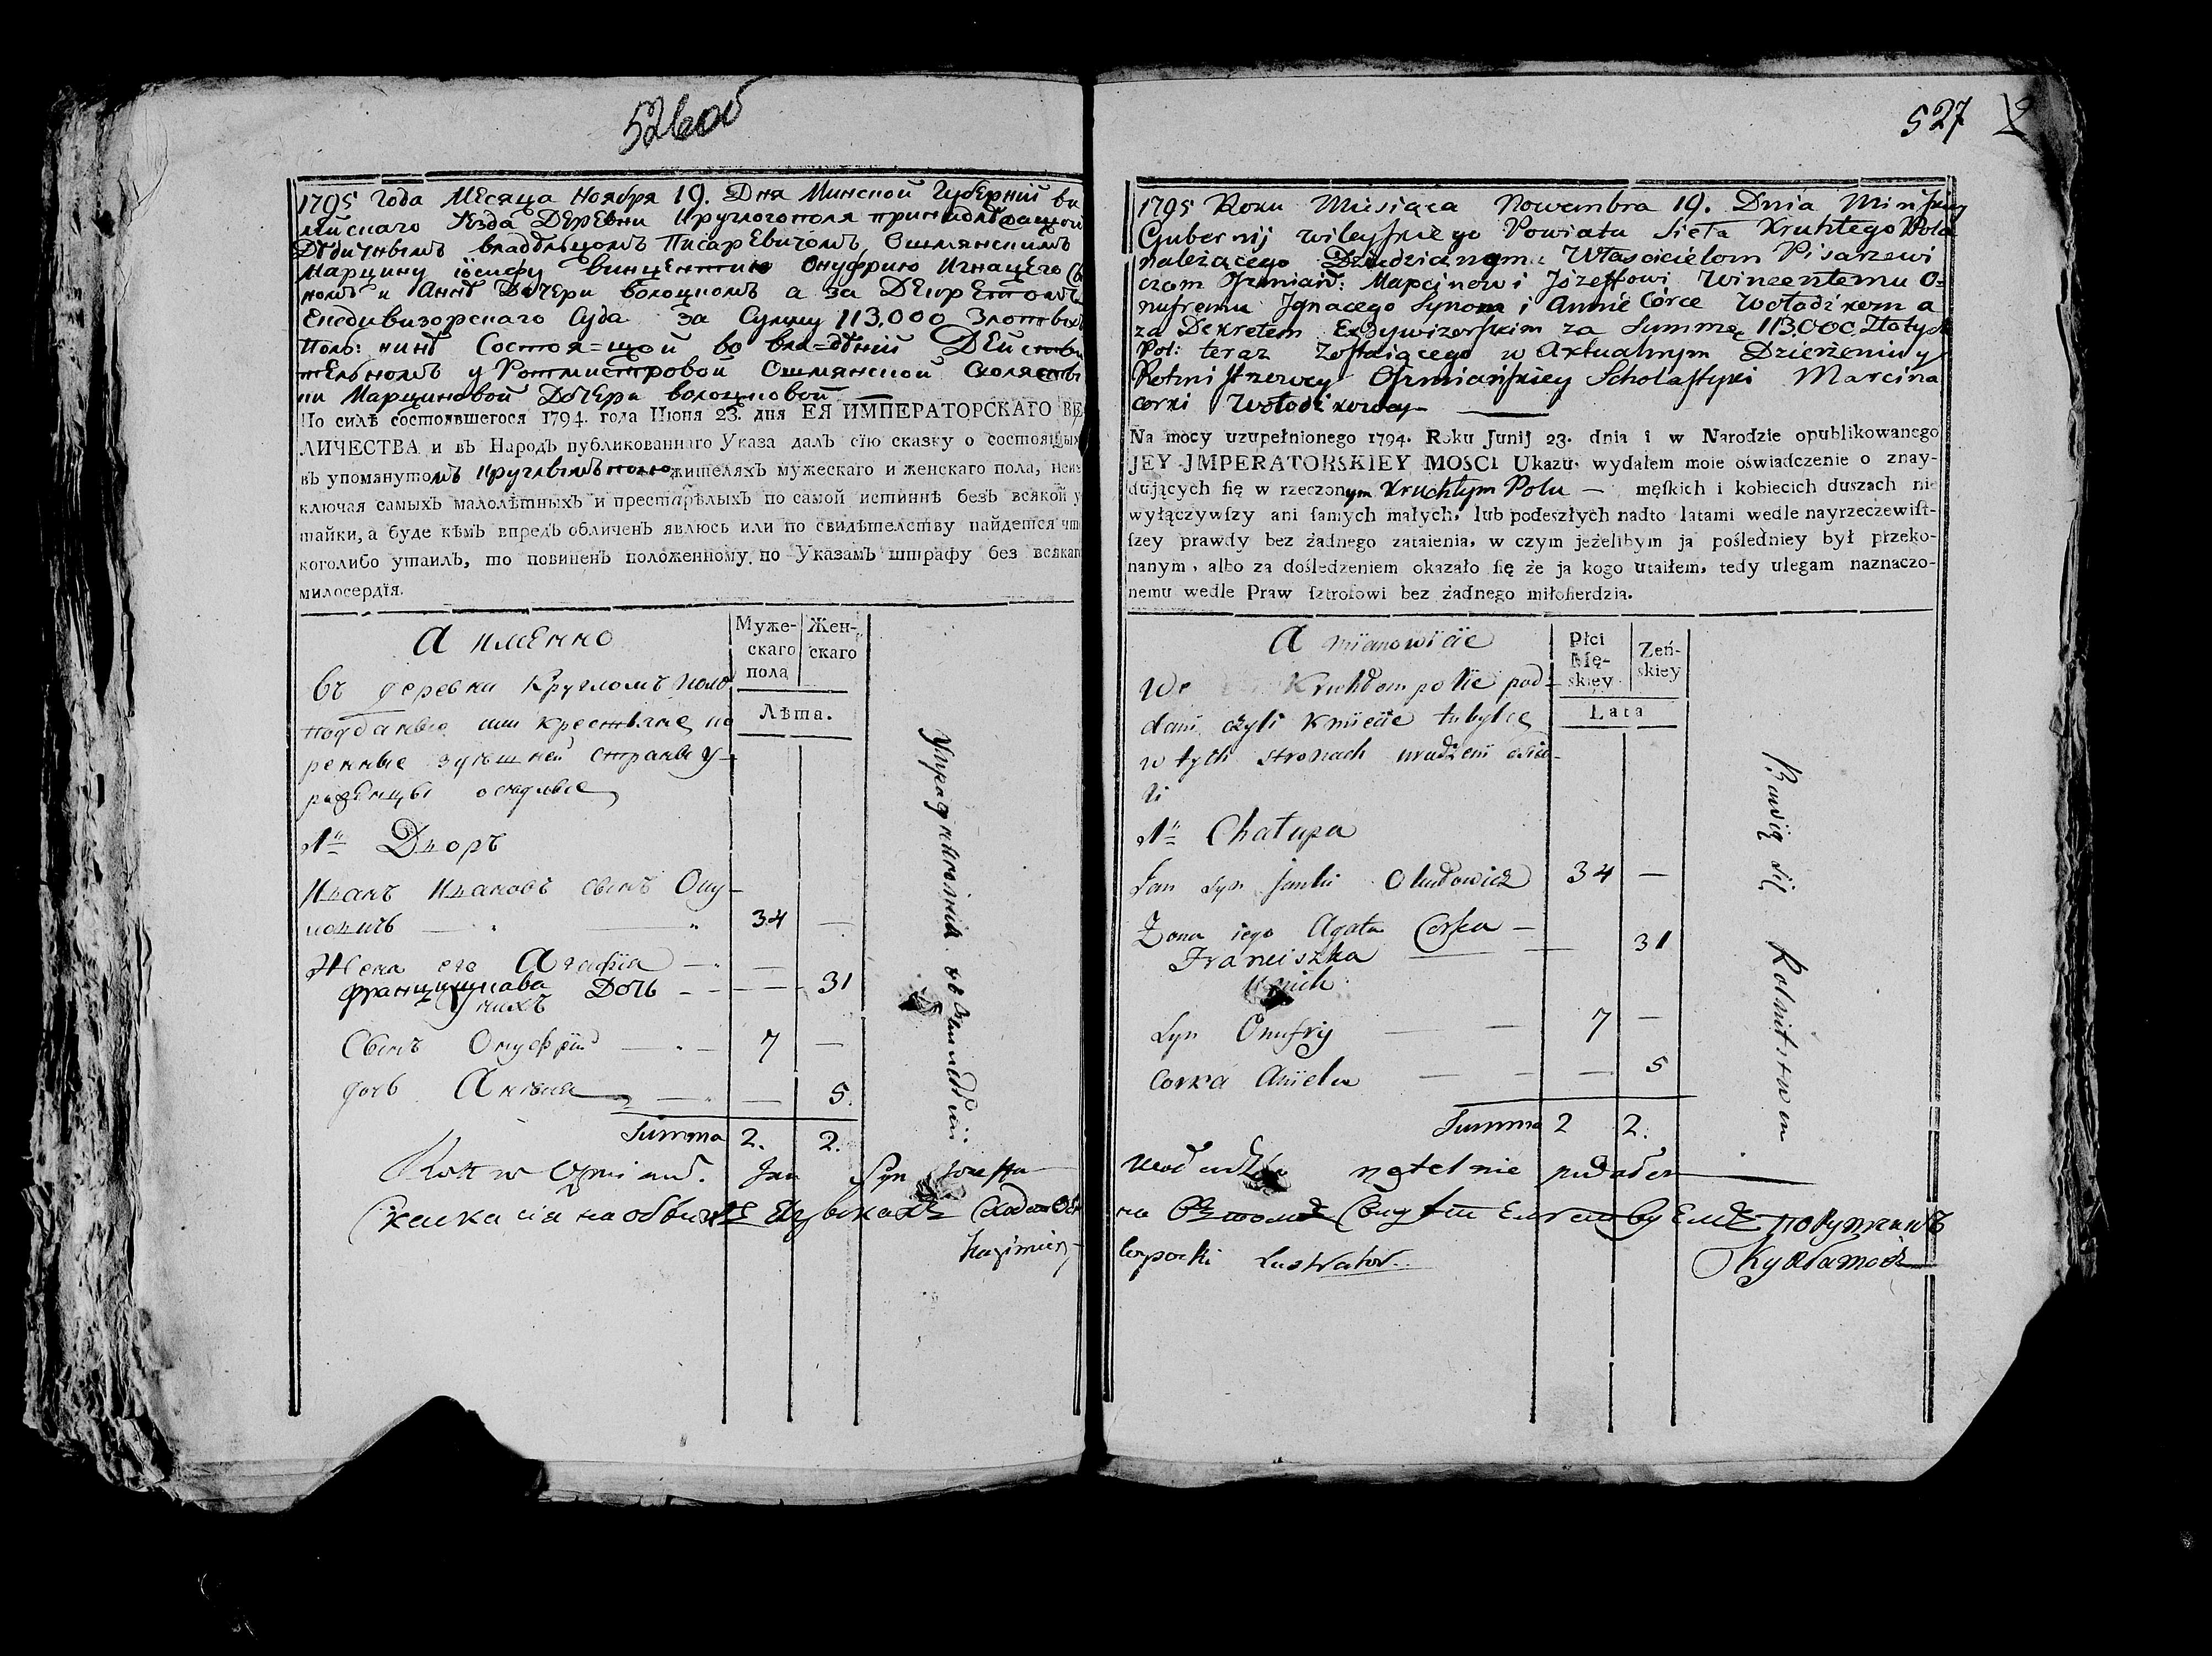 526об
1795 Года Месяца Ноября 19. Дня Минской Губерній ви
лейскаго Уезда Деревни Круглогополя принадлежащой
Дѣдичнымъ владѣльцомъ Писаревичомъ Ошмянскимъ
Марцину іосифу винцентию Онуфрию Игнацего Сы
номъ и Аннѣ Дочери волоцкомъ а за Декретомъ
Екздивизорскаго Суда за Сумму 113.000 Злотыхъ
Поль: нинѣ Состоя=щой во вла=дѣніи Действи
тельномъ у Ротмистровой Ошмянской Схоласти
ки Марциновой Дочери волоцковой
По силѣ состоявшегося 1794. года Іюня 23. дня ЕЯ ИМПЕРАТОРСКАГО ВЕ
ЛИЧЕСТВА и въ Народъ публикованнаго Указа далъ сію сказку о состоящыхъ
въ упомянутомъ Круглымъ полю жителяхъ мужескаго и женскаго пола, неис
ключая самыхъ малолѣтныхъ и престарѣлыхъ по самой истиннѣ безъ всякой у
тайки, а буде кѣмъ впредь обличенъ явлюсь или по свидѣтелству найдется что
коголибо утаилъ, то повиненъ положенному по Указамъ штрафу без всякаго
милосердія.
А именно
Муже-
скаго
пола
Жен-
скаго
Лѣта.
Въ деревни Кругломъ Полю
подданые или крестьяне ко
ренные здешней страны у
роженцы оседлые
1й Дворъ
Иванъ Ивановъ сынъ Олу
34 —
Жена его Агафія — —
францишкава Дочь — — 31
Сынъ Онуфрій — 7 —
дочь Анеля — — 5.
Summa 2. 2.
Упражняются въ Земледѣліи
Jan Syn Jozefa
Сказка сія на обѣихъ Языкахъ
Kazimierz
527
1795 Roku Miesiąca Nowembra 19. Dnia Minskiey
Gubernij wileyskiego Powiatu Sieła Kruhłego Pola
należącego Dziedzicznym Włascicielom Pisarzewi
czom Oszmiań: Marcinowi Józeffowi Wincentemu O=
nufremu Jgnacego Synom i Annie Córce Wołodzkom a
za Dekretem Exdywizorskim za Summę 113000 Złotych
Pol: teraz Zostaiącego w Aktualnym Dzierżeniu y
Rotmistrzowey Oszmiańskiey Scholastyki Marcina
corki Wołodzkowey
Na mocy uzupełnionego 1794. Roku Junij 23. dnia i w Narodzie opublikowanego
JEY JMPERATORSKIEY MOSCI Ukazu, wydałem moie oświadczenie o znay-
dujących się w rzeczonym Kruchłym Polu — męskich i kobiecich duszach nie
wyłączywszy ani samych małych, lub podeszłych nadto latami wedle nayrzeczewist-
szey prawdy bez żadnego zataienia, w czym jeżelibym ja pośledniey był przeko-
nanym, albo za dośledzeniem okazało się że ja kogo utaiłem, tedy ulegam naznaczo-
nemu wedle Praw sztrofowi bez żadnego miłosierdzia.
A mianowicie
Płci
Mę-
skiey
Zeń-
skiey
Lata
We Kruhłom polie pod-
dani czyli kmiecie tubylce
w tych stronach urodzeni osie-
li
1й Chałupa
Jan Syn Janki 34 —
Żona iego Agata Corka —
Franciszka — 31
Syn Onufry — — 7 —
Corka Aniela — — — 5
Summa 2 2.
Bawią się Rolnictwem
Lustrator